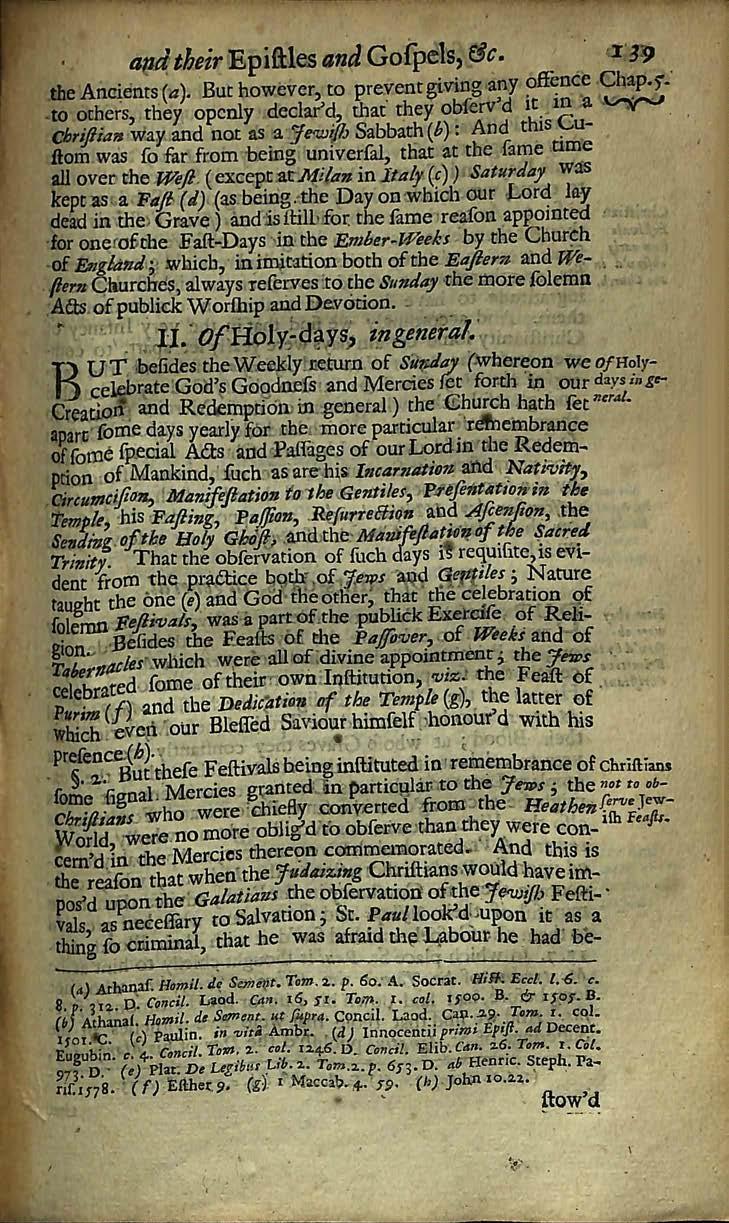 and their Epiſtles and Goſpels, &c. 139
the Ancients (a). But however, to prevent giving any offence Chap. 5.
to others, they openly declar'd, that they obſerv'd it in a
Chriſtian way and not as a Jewiſh Sabbath (b): And this Cu-
ſtom was ſo far from being univerſal, that at the ſame time
all over the Weſt (except at Milan in Italy (c)) Saturday was
kept as a Faſt (d) (as being the Day on which our Lord lay
dead in the Grave) and is ſtill for the ſame reaſon appointed
for one of the Faſt-Days in the Ember-Weeks by the Church
of England; which, in imitation both of the Eaſtern and We-
ſtern Churches, always reſerves to the Sunday the more ſolemn
Acts of publick Worſhip and Devotion.
II. Of Holy-days, in general.
BUT beſides the Weekly return of Sunday (whereon we of Holy-
celebrate God's Goodneſs and Mercies ſet forth in our days in ge-
Creation and Redemption in general) the Church hath ſet neral.
apart ſome days yearly for the more particular remembrance
of ſome ſpecial Acts and Paſſages of our Lord in the Redem-
ption of Mankind, ſuch as are his Incarnation and Nativity,
Circumciſion, Manifeſtation to the Gentiles, Preſentation in the
Temple, his Faſting, Paſſion, Reſurrection and Aſcenſion, the
Sending of the Holy Ghoſt, and the Manifeſtation of the Sacred
Trinity. That the obſervation of ſuch days is requiſite, is evi-
dent from the practice both of Jews and Gentiles; Nature
taught the one (e) and God the other, that the celebration of
ſolemn Feſtivals, was a part of the publick Exerciſe of Reli-
gion. Beſides the Feaſts of the Paſſover, of Weeks and of
Tabernacles which were all of divine appointment; the Jews
celebrated ſome of their own Inſtitution, viz. the Feaſt of
Purim (f) and the Dedication of the Temple (g), the latter of
which even our Bleſſed Saviour himſelf honour'd with his
preſence (h).
§. 2. But theſe Feſtivals being inſtituted in remembrance of Chriſtians
ſome ſignal Mercies granted in particular to the Jews; the not to ob-
Chriſtians who were chiefly converted from the Heathen ſerve Jew-
World, were no more oblig'd to obſerve than they were con- iſh Feaſts.
cern'd in the Mercies thereon commemorated. And this is
the reaſon that when the Judaizing Chriſtians would have im-
pos'd upon the Galatians the obſervation of the Jewiſh Feſti-
vals, as neceſſary to Salvation; St. Paul look'd upon it as a
thing ſo criminal, that he was afraid the Labour he had be-
(a) Athanaſ. Homil. de Sement. Tom. 2. p. 60. A. Socrat. Hiſt. Eccl. l. 6. c.
8. p. 312. D. Concil. Laod. Can. 16, 51. Tom. 1. col. 1500. B. & 1505. B.
(b) Athanaſ. Homil. de Sement. ut ſupra. Concil. Laod. Can. 29. Tom. 1. col.
1501. C. (c) Paulin. in vitâ Ambr. (d) Innocentii primi Epiſt. ad Decent.
Eugubin. c. 4. Concil. Tom. 2. col. 1246. D. Concil. Elib. Can. 26. Tom. 1. Col.
973. D. (e) Plat. De Legibus Lib. 2. Tom. 2. p. 653. D. ab Henric. Steph. Pa-
riſ. 1578. (f) Eſther 9. (g) 1 Maccab. 4. 59. (h) John 10. 22.
ſtow'd